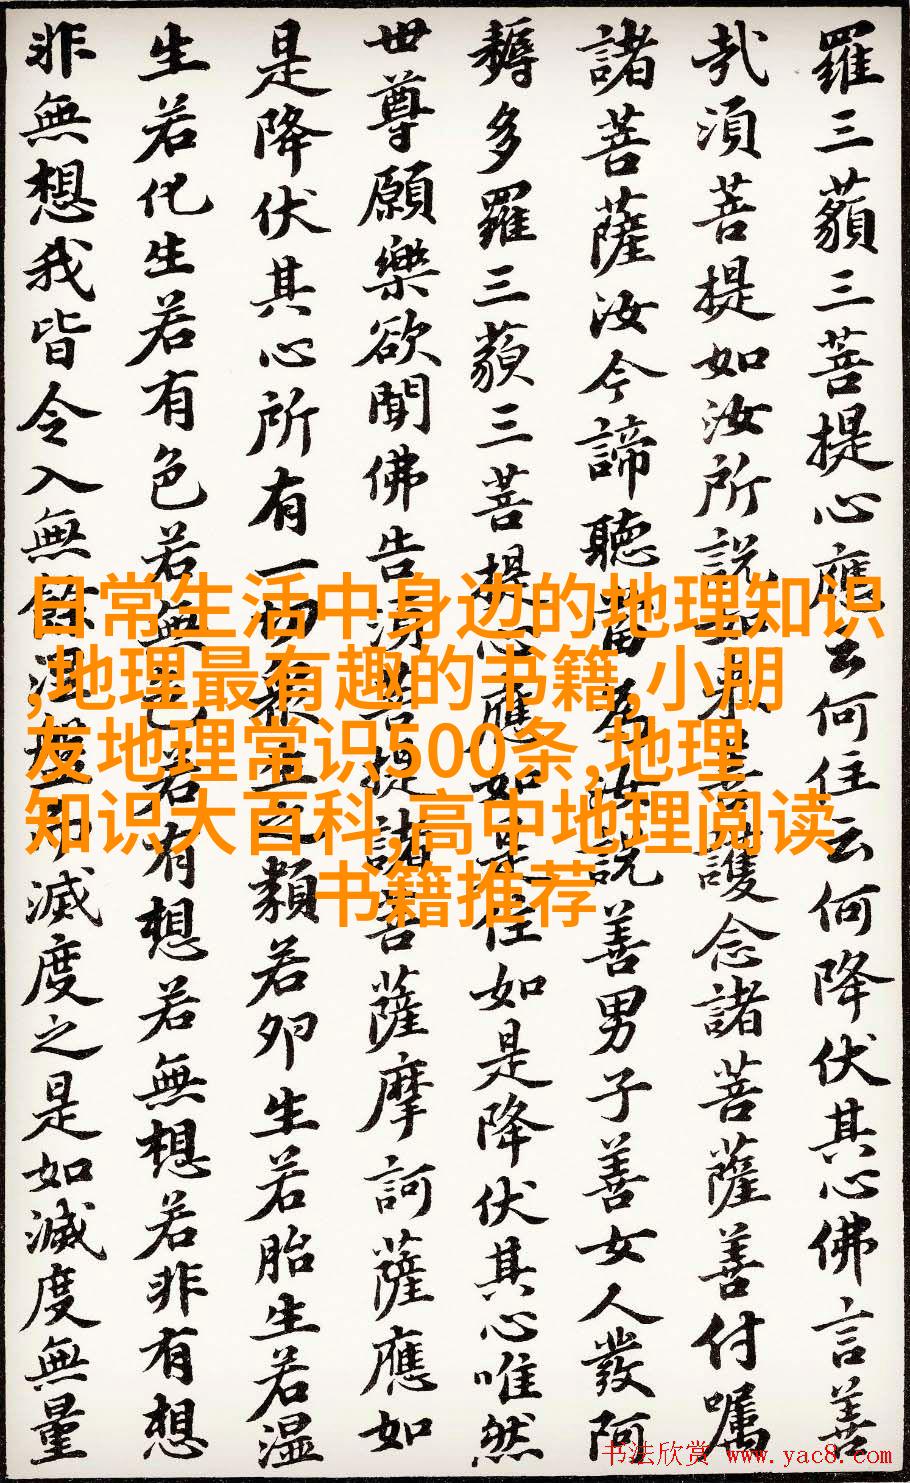 羅三藐三菩提心應云何住云何降伏其心佛言善
哉須菩提如汝所說如来善護念諸菩薩善付囑
諸菩薩汝今諦聽當為汝說善男子善女人發阿
耨多羅三藐三菩提心應如是住如是降伏其心唯然
世尊願樂欲聞佛告須菩提諸菩薩摩訶薩應如
是降伏其心所有一切眾生之類若卵生若胎生若湿
生若化生若有色若無色若有想若無想若非有想
非無想我皆令入無餘涅槃而滅度之是如滅度無量
日常生活中身边的地理知识
,地理最有趣的书籍,小朋
友地理常识500条,地理
知识大百科,高中地理阅读
书籍推荐
书法欣赏 www.yac8.com